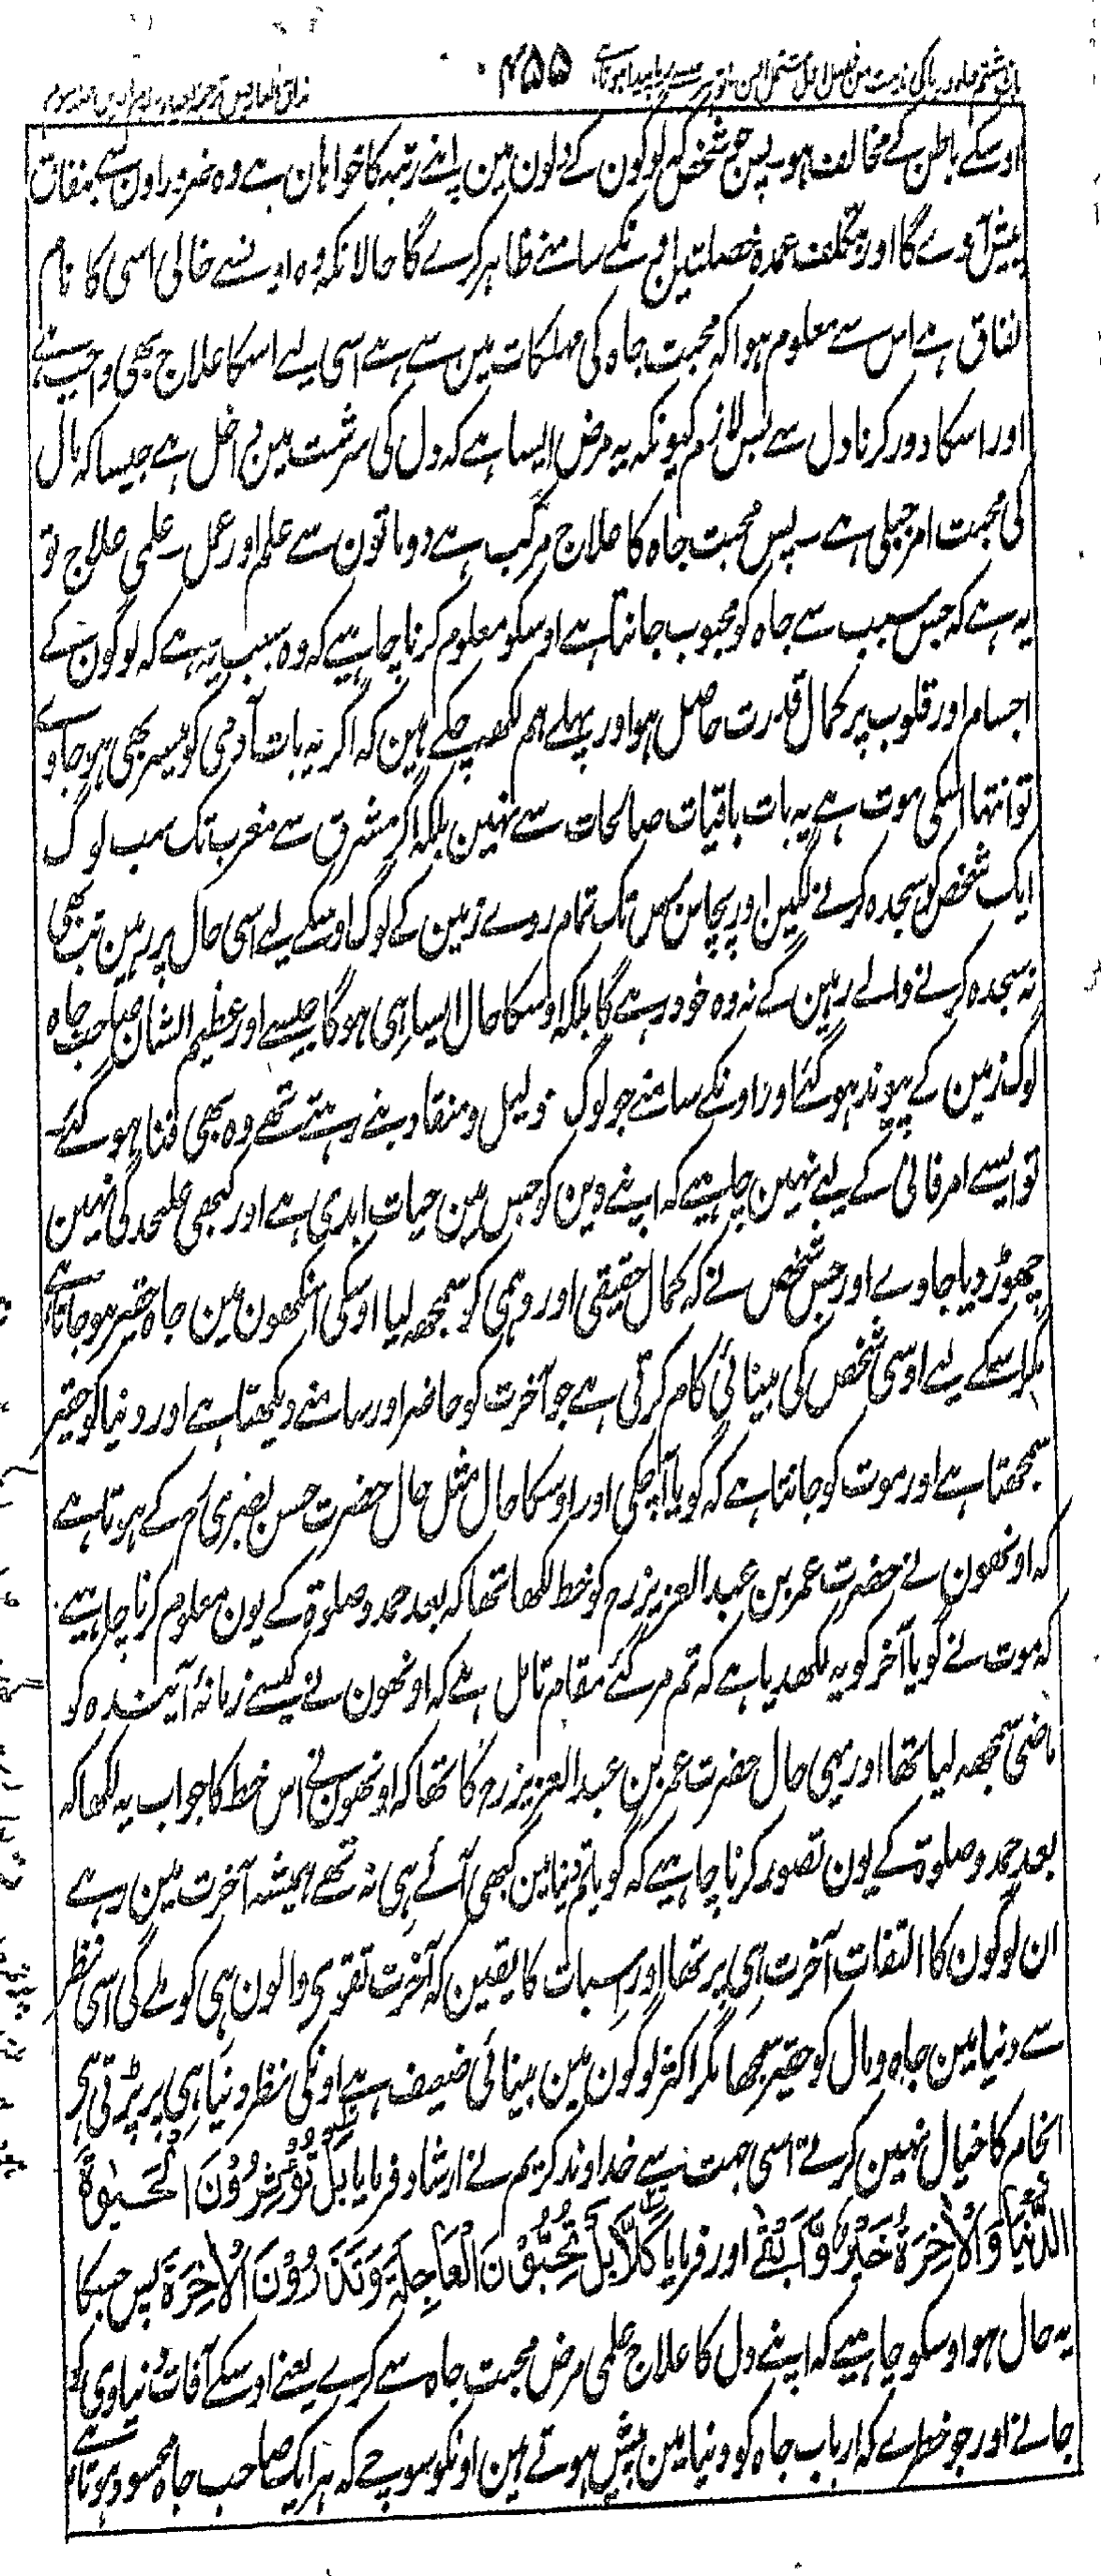 ۴۵۵
اوسکے باطن کے مخالف ہو پس جو شخص کہ لوگون کے دلون مین اپنے رتبہ کا خواہان ہے وہ ضرور اون سے بنفاق
پیش آوے گا اور بتکلف عمدہ خصلتین اونکے سامنے ظاہر کرے گا حالانکہ وہ اونسے خالی اسی کا نام
نفاق ہے اس سے معلوم ہوا کہ محبت جاہ کی مہلکات مین سے ہے اسی لیے اسکا علاج بھی واجب ہے
اور اسکا دور کرنا دل سے بس لازم کیونکہ یہ مرض ایسا ہے کہ دل کی سرشت مین داخل ہے جیسا کہ مال
کی محبت امر جبلی ہے پس محبت جاہ کا علاج مرکب ہے دو باتون سے علم اور عمل سے علمی علاج تو
یہ ہے کہ جس سبب سے جاہ کو محبوب جانتا ہے اوسکو معلوم کرنا چاہیے کہ وہ سبب یہ ہے کہ لوگون کے
اجسام اور قلوب پر کمال قدرت حاصل ہو اور پہلے ہم لکھ چکے ہین کہ اگر یہ بات آدمی کو میسر بھی ہو جاوے
تو انتہا اسکی موت ہے یہ بات باقیات صالحات سے نہین بلکہ اگر مشرق سے مغرب تک سب لوگ
ایک شخص کو سجدہ کرنے لگین اور پچاس برس تک تمام روے زمین کے لوگ اوسکے لیے اسی حال پر رہین تب بھی
نہ سجدہ کرنے والے رہین گے نہ وہ خود رہے گا بلکہ اوسکا حال ایسا ہی ہوگا جیسے اور عظیم الشان صاحب جاہ
لوگ زمین کے پیوند ہو گئے اور اونکے سامنے جو لوگ ذلیل و منقاد بنے رہتے تھے وہ بھی فنا ہو گئے
تو ایسے امر فانی کے لیے نہین چاہیے کہ اپنے دین کو جس مین حیات ابدی ہے اور کبھی علحدگی نہین
چھوڑ دیا جاوے اور جس شخص نے کہ کمال حقیقی اور وہمی کو سمجھ لیا اوسکی آنکھون مین جاہ حقیر ہو جاتا ہے
مگر اسکے لیے اوسی شخص کی بینائی کام کرتی ہے جو آخرت کو حاضر اور سامنے دیکھتا ہے اور دنیا کو حقیر
سمجھتا ہے اور موت کو جانتا ہے کہ گویا آ چکی اور اوسکا حال مثل حال حضرت حسن بصری رح کے ہوتا ہے
کہ اونھون نے حضرت عمر بن عبد العزیز رح کو خط لکھا تھا کہ بعد حمد و صلوۃ کے یون معلوم کرنا چاہیے
کہ موت نے گویا آخر کو یہ لکھدیا ہے کہ تم مر گئے مقام تامل ہے کہ اونھون نے کیسے زمانۂ آیندہ کو
ماضی سمجھ لیا تھا اور یہی حال حضرت عمر بن عبد العزیز رح کا تھا کہ اونھون نے اس خط کا جواب یہ لکھا کہ
بعد حمد و صلوۃ کے یون تصور کرنا چاہیے کہ گویا تم دنیا مین کبھی آئے ہی نہ تھے ہمیشہ آخرت مین رہے
ان لوگون کا التفات آخرت ہی پر تھا اور اسبات کا یقین کہ آخرت تقوی والون ہی کو ملے گی اسی نظر
سے دنیا مین جاہ و مال کو حقیر سمجھا مگر اکثر لوگون مین بینائی ضعیف ہے اونکی نظر دنیا ہی پر پڑتی ہے
انجام کا خیال نہین کرتے اسی جہت سے خداوند کریم نے ارشاد فرمایا بَلْ تُؤْثِرُوْنَ الْحَیٰوۃَ
الدُّنْیَا وَالْاٰخِرَۃُ خَیْرٌ وَّاَبْقٰی اور فرمایا کَلَّا بَلْ تُحِبُّوْنَ الْعَاجِلَۃَ وَتَذَرُوْنَ الْاٰخِرَۃَ پس جسکا
یہ حال ہو اوسکو چاہیے کہ اپنے دل کا علاج علمی مرض محبت جاہ سے کرے یعنے اوسکے آفات دنیاوی کو
جانے اور جو خطرے کہ ارباب جاہ کو دنیا مین پیش ہوتے ہین اونکو سوچے کہ ہر ایک صاحب جاہ محسود ہوتا ہے